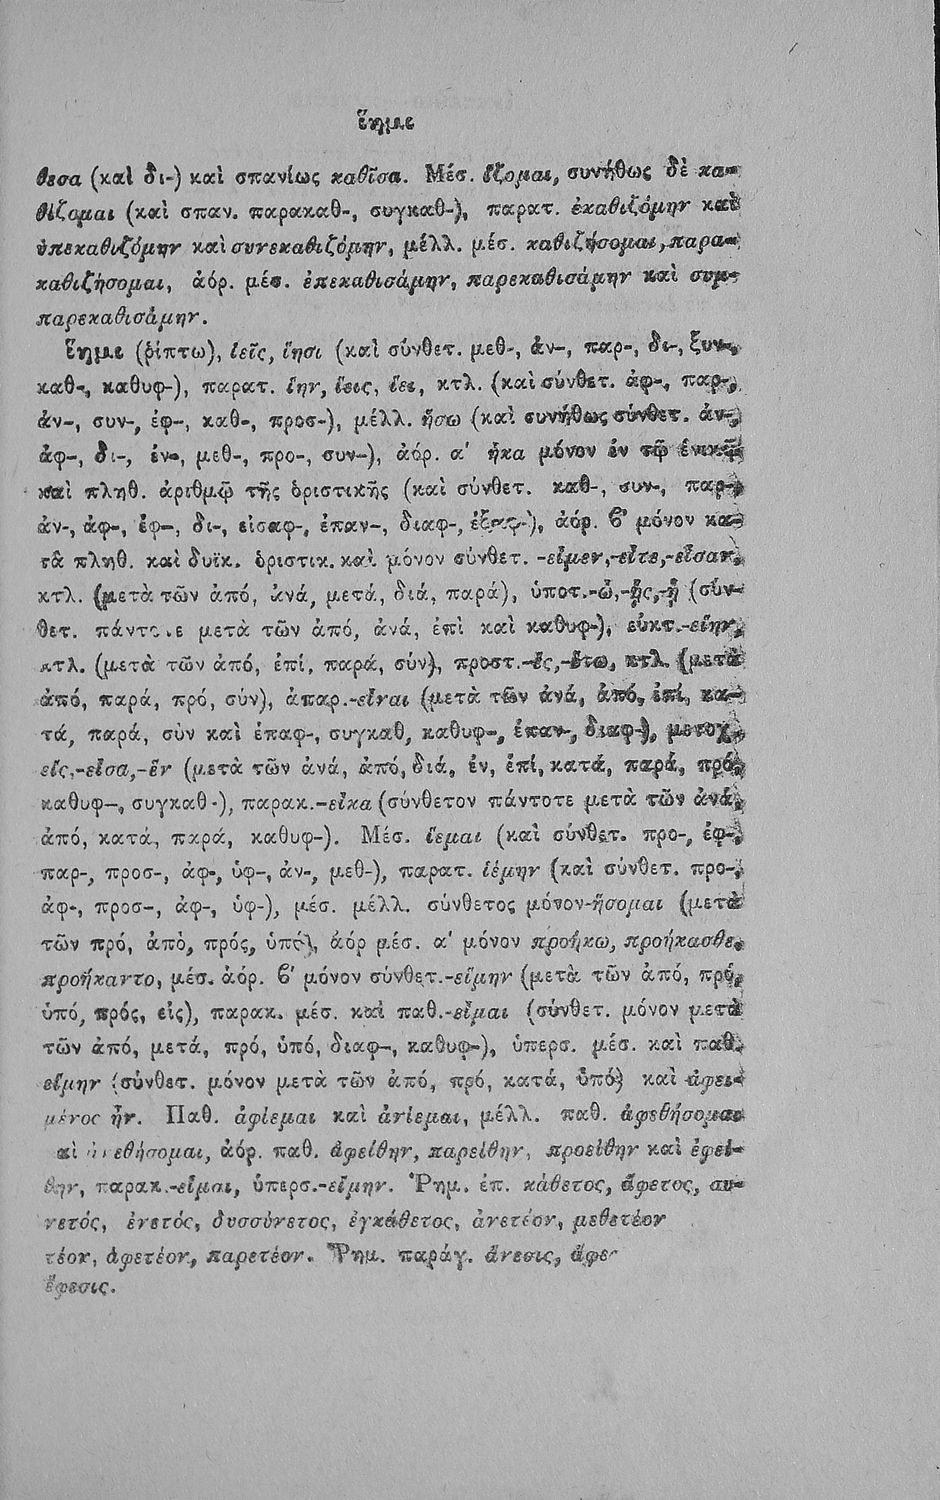 ἵημι
θεσα (καὶ δι-) καὶ σπανίως καθῖσα. Μέσ. ἵζομαι, συνήθως δὲ κα-
θίζομαι (καὶ σπαν. παρακαθ-, συγκαθ-), παρατ. ἐκαθιζόμην καὶ
ὑπεκαθιζόμην καὶ συνεκαθιζόμην, μέλλ. μέσ. καθιζήσομαι, παρα-
καθιζήσομαι, ἀόρ. μέσ. ἐπεκαθισάμην, παρεκαθισάμην καὶ συμ-
παρεκαθισάμην.
ἵημι (ῥίπτω), ἱεῖς, ἵησι (καὶ σύνθετ. μεθ-, ἀν-, παρ-, δι-, ξυν-,
καθ-, καθυφ-), παρατ. ἵην, ἵεις, ἵει, κτλ. (καὶ σύνθετ. ἀφ-, παρ-,
ἀν-, συν-, ἐφ-, καθ-, προσ-), μέλλ. ἥσω (καὶ συνήθως σύνθετ. ἀν-,
ἀφ-, δι-, ἐν-, μεθ-, προ-, συν-), ἀόρ. α' ἧκα μόνον ἐν τῷ ἑνικῷ
καὶ πληθ. ἀριθμῷ τῆς ὁριστικῆς (καὶ σύνθετ. καθ-, συν-, παρ-,
ἀν-, ἀφ-, ἐφ-, δι-, εἰσαφ-, ἐπαν-, διαφ-, ἐξαφ-), ἀόρ. ϐ' μόνον κα-
τὰ πληθ. καὶ δυϊκ. ὁριστικ. καὶ μόνον σύνθετ. -εἷμεν,-εἷτε,-εἷσαν,
κτλ. (μετὰ τῶν ἀπό, ἀνά, μετά, διά, παρά), ὑποτ.-ὧ,-ῇς,-ῇ (σύν-
θετ. πάντοτε μετὰ τῶν ἀπό, ἀνά, ἐπὶ καὶ καθυφ-), εὐκτ.-είην,
κτλ. (μετὰ τῶν ἀπό, ἐπί, παρά, σύν), προστ.-ἑς,-ἑτω, κτλ. (μετὰ
ἀπό, παρά, πρό, σύν), ἀπαρ.-εἷναι (μετὰ τῶν ἀνά, ἀπό, ἐπί, κα-
τά, παρά, σὺν καὶ ἐπαφ-, συγκαθ, καθυφ-, ἐπαν-, διαφ-), μετοχ.
εἱς,-εἷσα,-ἓν (μετὰ τῶν ἀνά, ἀπό, διά, ἐν, ἐπί, κατά, παρά, πρό,
καθυφ-, συγκαθ-), παρακ.-εἷκα (σύνθετον πάντοτε μετὰ τῶν ἀνά,
ἀπό, κατά, παρά, καθυφ-). Μέσ. ἵεμαι (καὶ σύνθετ. προ-, ἐφ-,
παρ-, προσ-, ἀφ-, ὑφ-, ἀν-, μεθ-), παρατ. ἱέμην (καὶ σύνθετ. προ-,
ἀφ-, προσ-, ἀφ-, ὑφ-), μέσ. μέλλ. σύνθετος μόνον-ἥσομαι (μετὰ
τῶν πρό, ἀπὸ, πρός, ὑπό), ἀόρ μέσ. α' μόνον προήκω, προήκασθε,
προήκαντο, μέσ. ἀόρ. ϐ' μόνον σύνθετ.-εἵμην (μετὰ τῶν ἀπό, πρό,
ὑπό, πρός, εἰς), παρακ. μέσ. καὶ παθ.-εἷμαι (σύνθετ. μόνον μετὰ
τῶν ἀπό, μετά, πρό, ὑπό, διαφ-, καθυφ-), ὑπερσ. μέσ. καὶ παθ.
εἵμην (σύνθετ. μόνον μετὰ τῶν ἀπό, πρό, κατά, ὑπό) καὶ ἀφει-
μένος ἦν. Παθ. ἀφίεμαι καὶ ἀνίεμαι, μέλλ. παθ. ἀφεθήσομαι
αἱ ἀνεθήσομαι, ἀόρ. παθ. ἀφείθην, παρείθην, προείθην καὶ ἐφεί-
θην, παρακ.-εἷμαι, ὑπερσ.-εἵμην. Ῥημ. ἐπ. κάθετος, ἄφετος, συ-
νετός, ἐνετός, δυσσύνετος, ἐγκάθετος, ἀνετέον, μεθετέον
τέον, ἀφετέον, παρετέον. Ῥημ. παράγ. ἄνεσις, ἄφε
ἔφεσις.